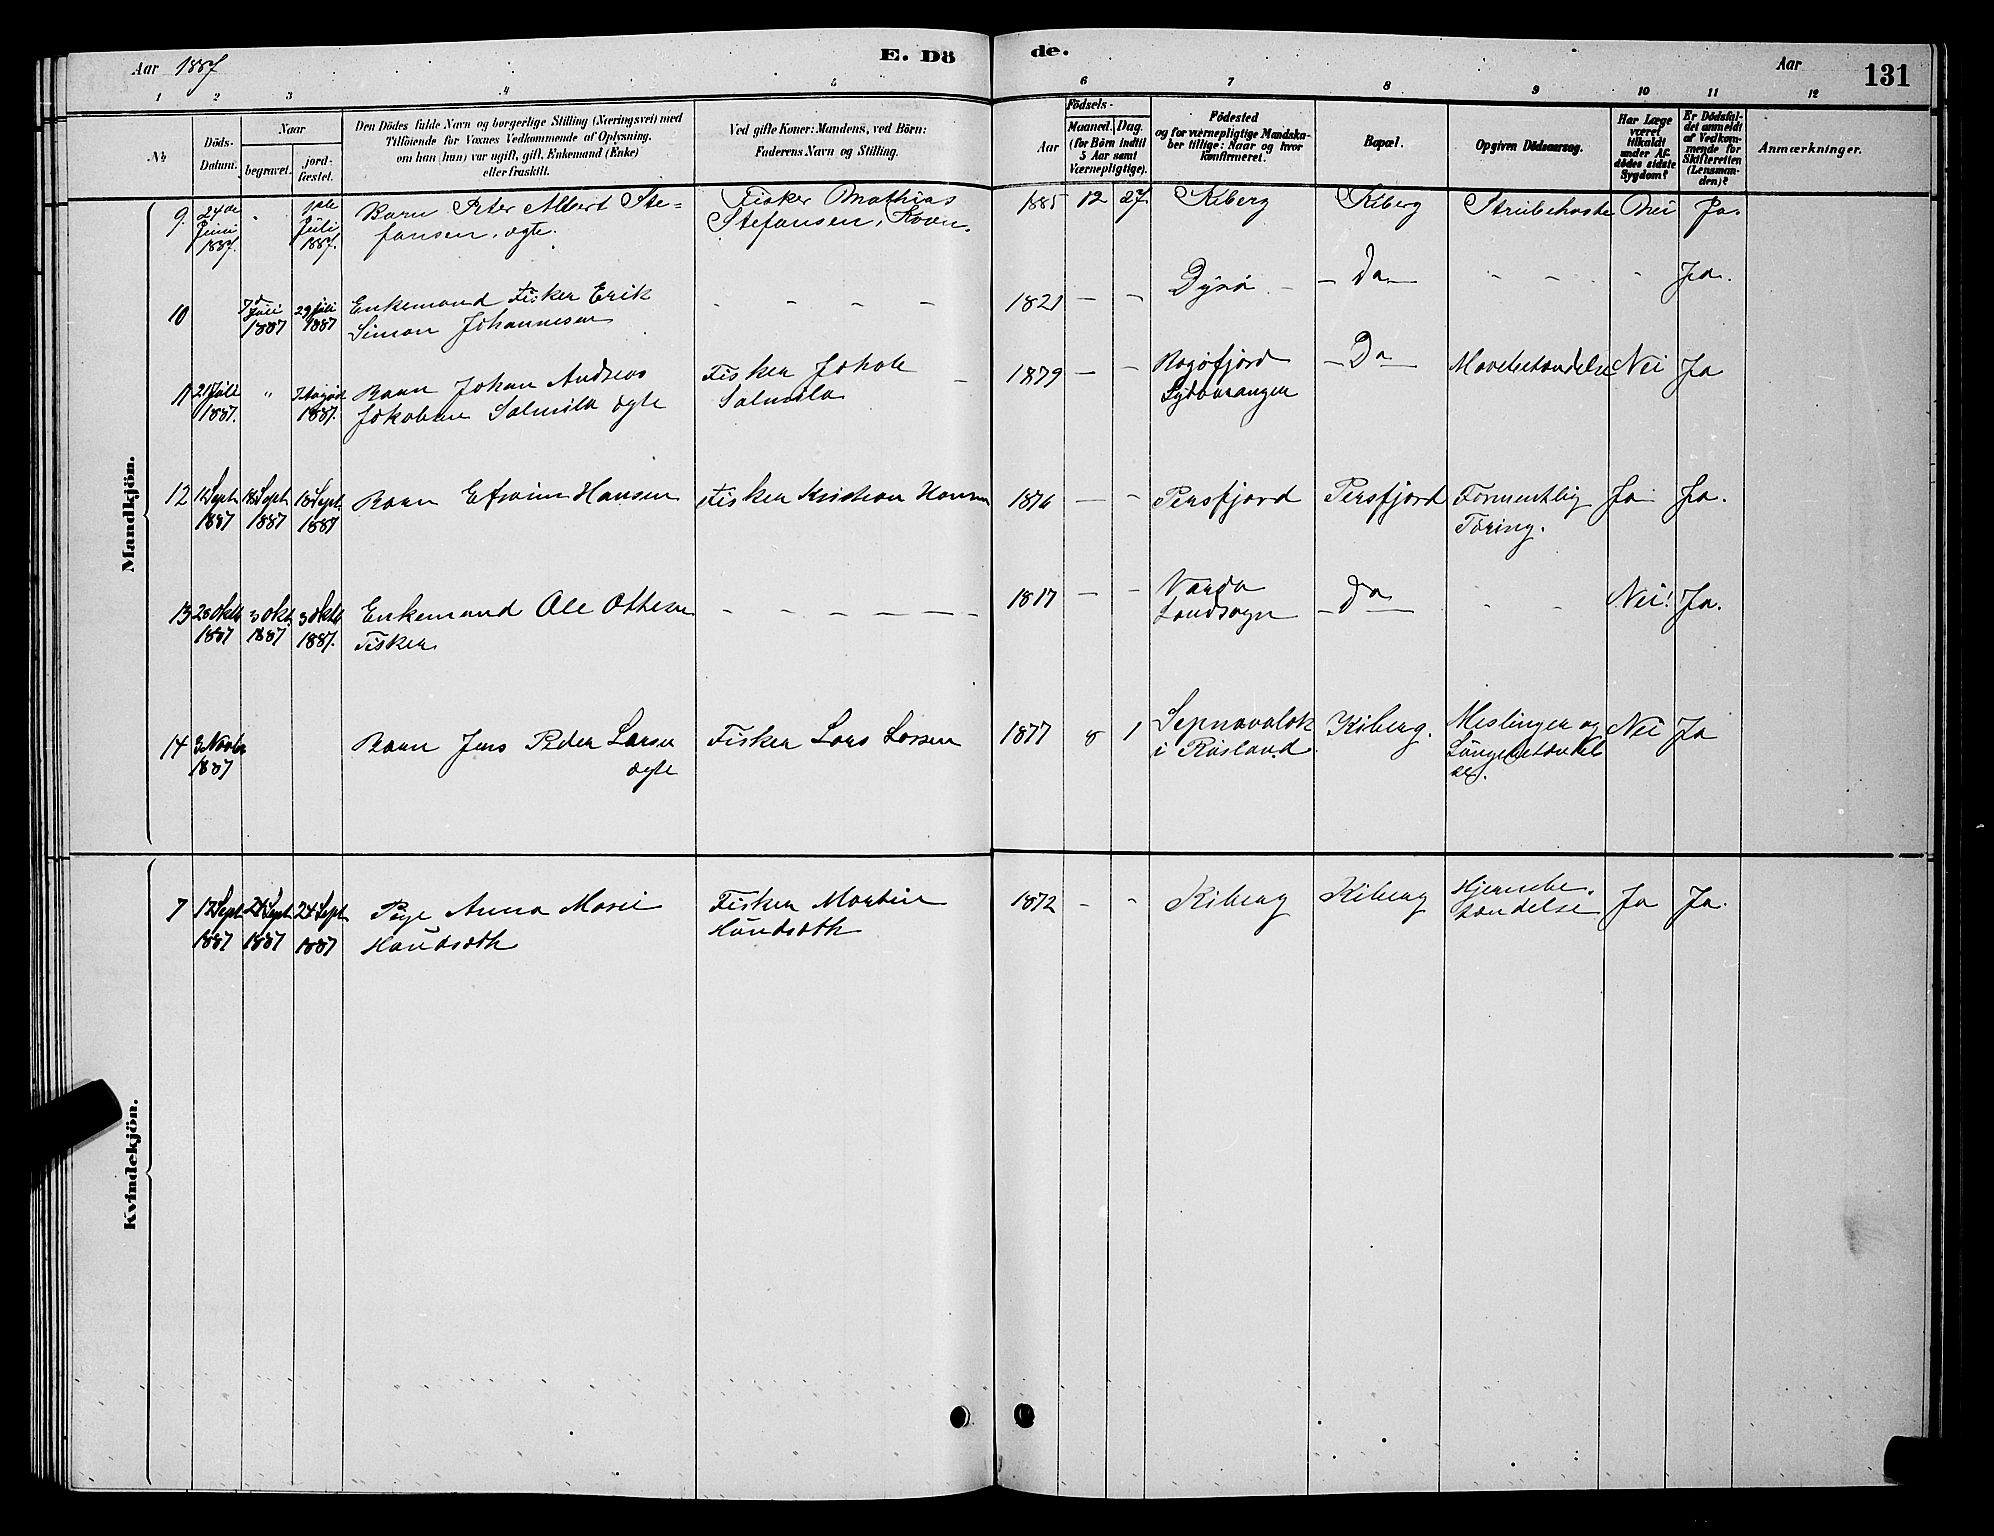 Aar 1887
E. Dö
de.
Aar
131
1 2 3 4 5 6 7 8 9 10 11 12
№
Döds-
Datum.
Naar
begravet.
jord-
fæstet.
Den Dödes fulde Navn og borgerlige Stilling (Næringsvei) med
Tilföiende for Voxnes Vedkommende af Oplysning,
om han (hun) var ugift, gift, Enkemand (Enke)
eller fraskilt.
Ved gifte Koner: Mandens, ved Börn:
Faderens Navn og Stilling.
Födsels-
Aar
Maaned.
Dag.
(for Börn indtil
5 Aar samt
Værnepligtige).
Födested
og for værnepligtige Mandska-
ber tillige: Naar og hvor
konfirmeret.
Bopæl.
Opgiven Dödsaarsag.
Har Læge
været
tilkaldt
under Af-
dödes sidste
Sygdom?
Er Dödsfal-
det anmeldt
af Vedkom-
mende for
Skifteretten
(Lensman-
den)?
Anmærkninger.
Mandkjön.
9. 24de Juni 1887. " Juli 1887. Barn Peter Albert Ste-
fansen, ægte.
Fisker Mathias
Stefansen, Kvæn.
1885 12 27. Kiberg Kiberg Strubehoste Nei Ja.
10 7d Juli 1887 29 Juli 1887 Enkemand Fisker Erik
Simon Johannesen
- - - - 1821 - - Dyrö - - Do - - - - Ja.
11 21 Juli 1887. " 7 August 1887. Barn Johan Andreas
Jakobsen Salmila ægte
Fisker Jakob
Salmila
1879 - - Bogøfjord
Sydvaranger
- Do - Mavebetændelse Nei Ja
12 Sept 1887 18 Sept 1887 18 Sept. 1887 Barn Efraim Hansen Fisker Kristian Hansen 1876 - - Persfjord Persfjord Formentlig
Tæring.
Ja Ja.
13 28 Oktb 1887 3 Okt 1887 3 Oktb 1887. Enkemand Ole Ottesen
Fisker
- - - - - - 1817 - - Vardø
Landsogn
- Do - - - Nei! Ja.
14 3 Novbr 1887 Barn Jens Peder Larsen
ægte
Fisker Lars Larsen 1877 8 1 Sepnavalok
i Rusland
Kiberg. Meslinger og
Lungebetændel
se.
Nei Ja
Kvindekjön.
7 12 Sept 1887 24 Sept 1887 24 Sept 1887 Pige Anna Marie
Haudsæth
Fisker Martin
Haudsæth
1872 - - Kiberg Kiberg Hjernebe-
tændelse
Ja Ja.